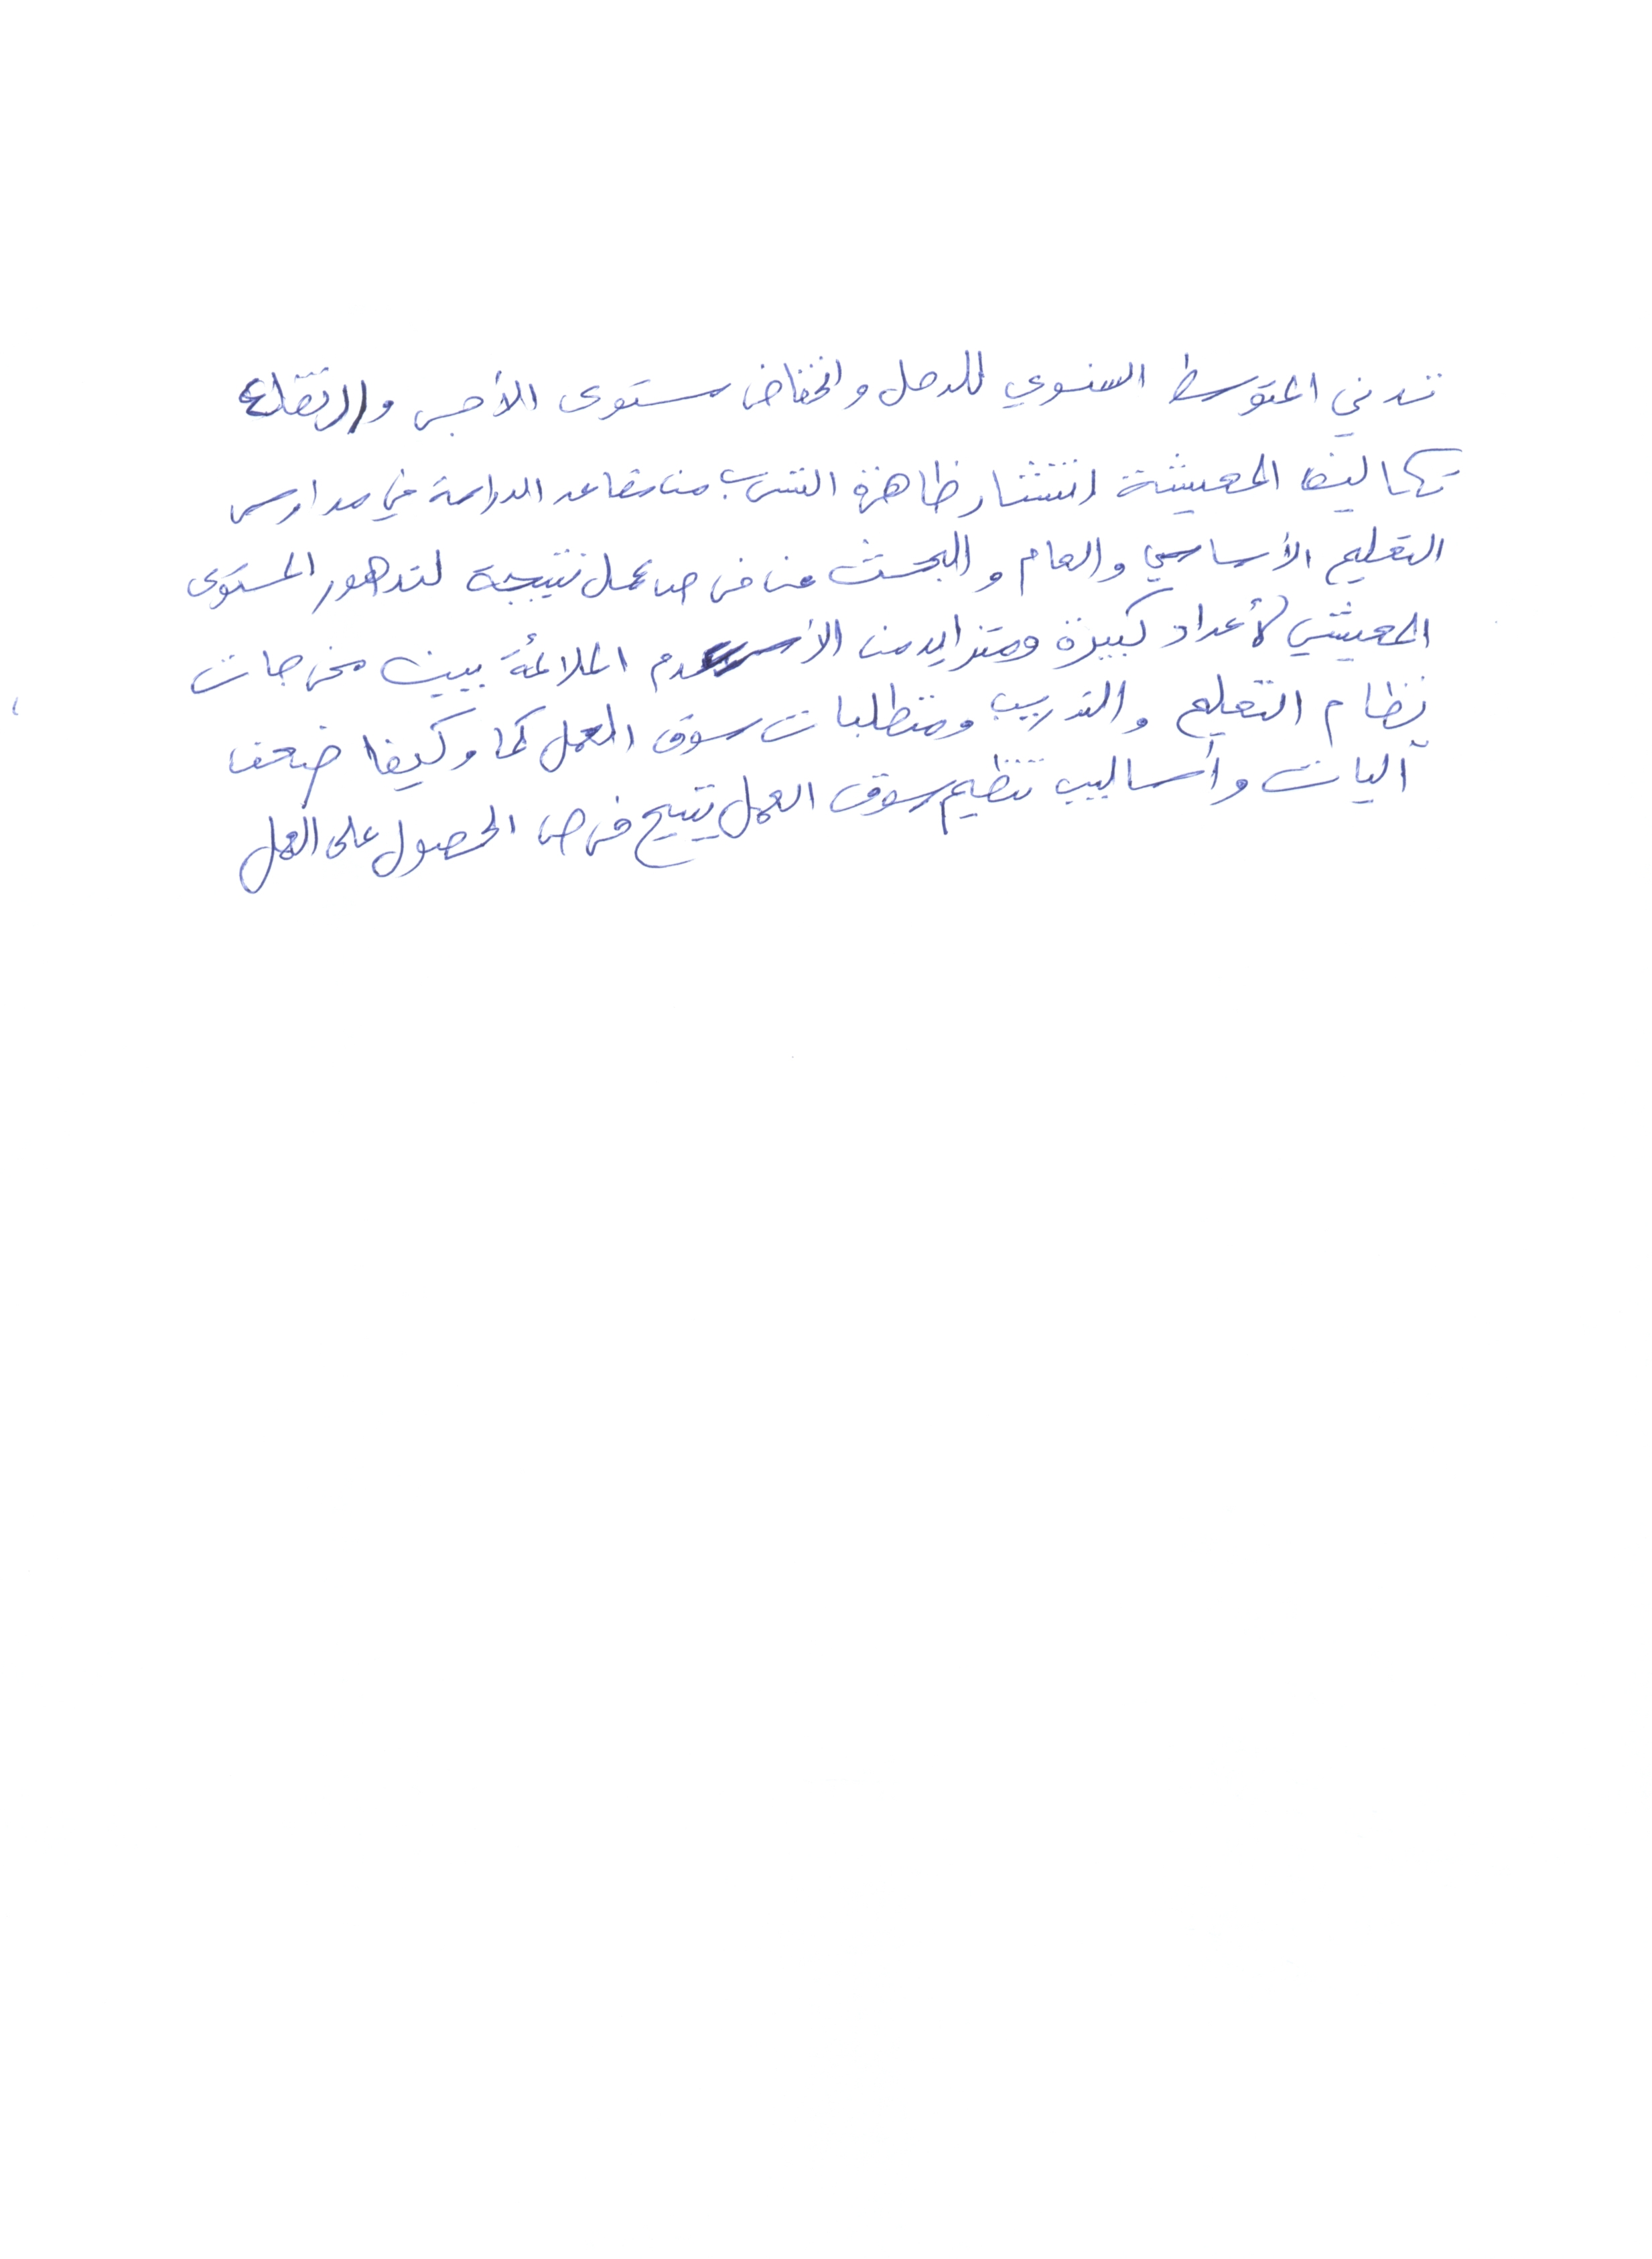 تدني المتوسط السنوي للدخل وانخفاض مستوى الأجر وارتفاع
تكاليف المعيشة انتشار ظاهرة التسرب من مقاعد الدراسة في مدارس
التعليم الأساسي والعام والبحث عن فرص عمل نتيجة لتدهور المستوى
المعيشي لأعداد كبيرة ومتزايد من الأسر عدم الملائمة بين مخرجات
نظام التعليم والتدريب ومتطلبات سوق العمل كما وكيفا ضعف
آليات وأساليب تنظيم سوق العمل يتيح فرص الحصول على العمل